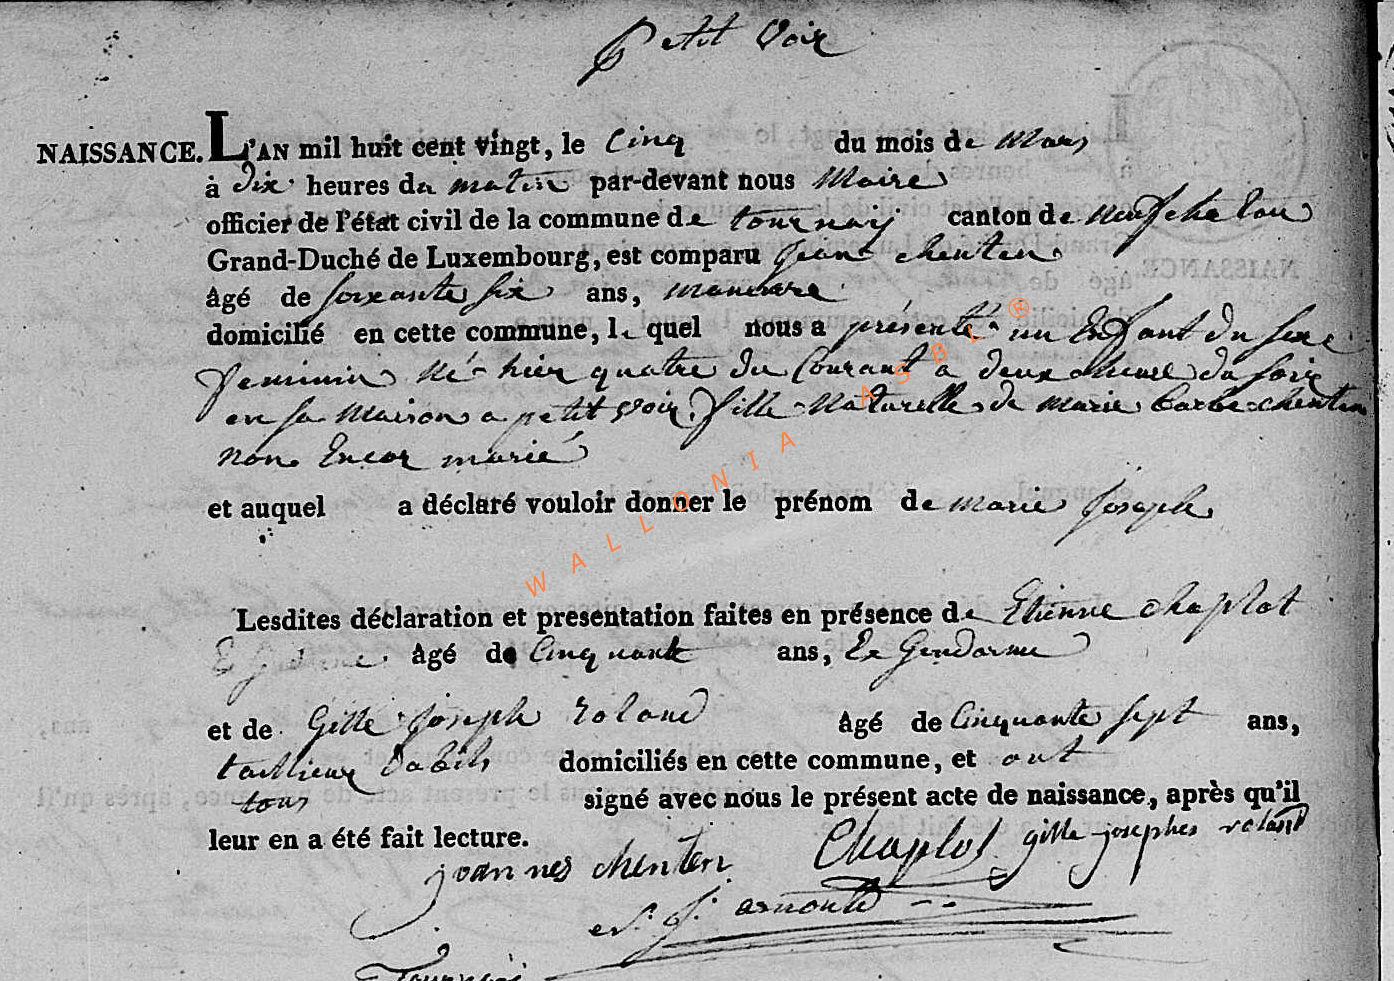 petit Voir
NAISSANCE. L'AN mil huit cent vingt, le Cinq du mois de Mars
à dix heures du matin par-devant nous Maire
officier de l'état civil de la commune de tournay canton de neufchatau
Grand-Duché de Luxembourg, est comparu jean chenten
âgé de soixante six ans, maneuvre
domicilié en cette commune, le quel nous a présenté un Enfant du sexe
feminin Né hier quatre du Courant a deux heure du soir
en sa Maison a petit voir, fille Naturelle de marie barbe chenten
non Encor marié
et auquel a déclaré vouloir donner le prénom de marie joseph
Lesdites déclaration et presentation faites en présence de Etienne chaplot
âgé de Cinquante ans, Ex Gendarme
et de Gille joseph roland âgé de Cinquante sept ans,
taillieur dabits domiciliés en cette commune, et ont
tous signé avec nous le présent acte de naissance, après qu'il
leur en a été fait lecture.
joannes chenten Chaplot gille josephes roland
arnould
Tournai
WALLONIA ASBL ®
NAISSANCE